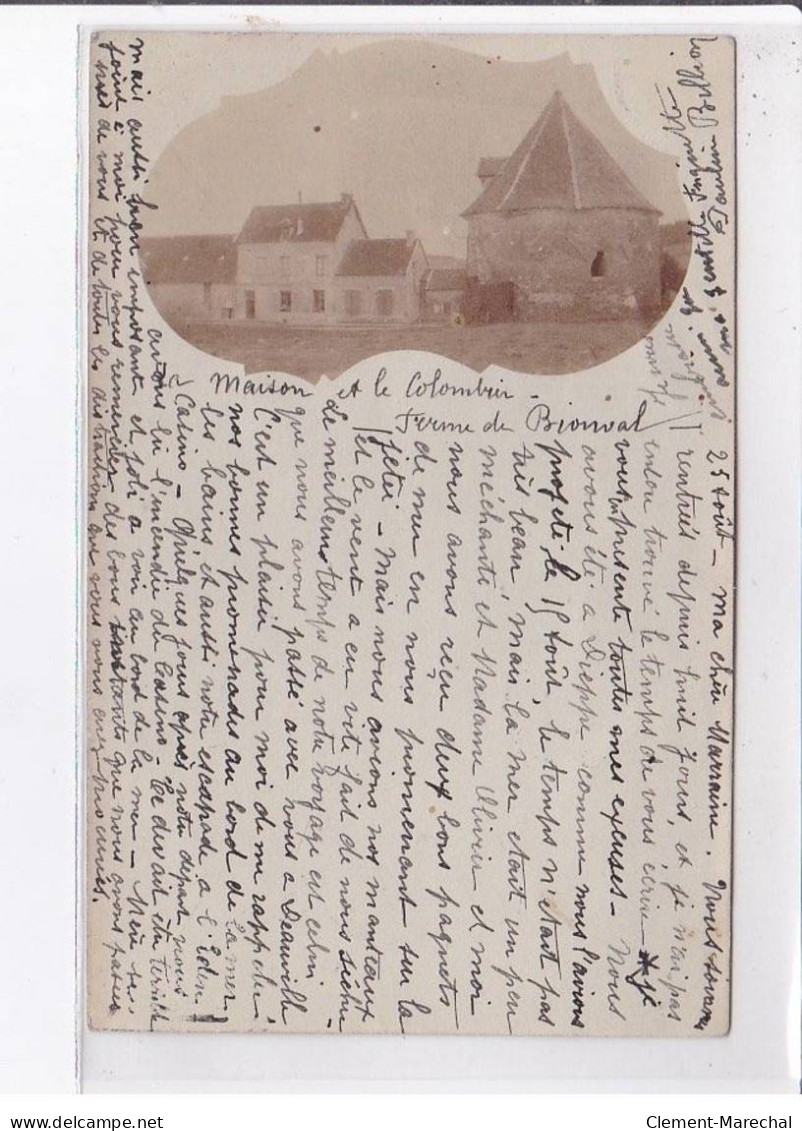 Maison et le Colombier.
Ferme de Bionval
25 Août - Ma chère Marraine. Nous sommes
rentrés depuis huit jours, et je n'ai pas
encore trouvé le temps de vous écrire - je
vous en présente toutes mes excuses - Nous
avons été à Dieppe comme nous l'avions
projeté le 15 Août, le temps n'était pas
très beau, mais la mer était un peu
méchante et Madame Olivier et moi
nous avons reçu deux bons paquets
de mer en nous promenant sur la
jetée - Mais nous avions nos manteaux
et le vent a eu vite fait de nous sécher
Le meilleur temps de notre voyage est celui
que nous avons passé avec vous à Deauville
C'est un plaisir pour moi de me rappeler
nos bonnes promenades au bord de la mer,
les bains, et aussi notre escapade à l'Eden
Casino - Quelques jours après notre départ nous
avons lu l'incendie du Casino - Ce devait être terrible
mais aussi bien imposant et joli à voir au bord de la mer - Mère se
joint à moi pour vous remercier des bons instants que nous avons passés
près de vous et de toutes les distractions que vous nous avez procurées.
Clement-Marechal